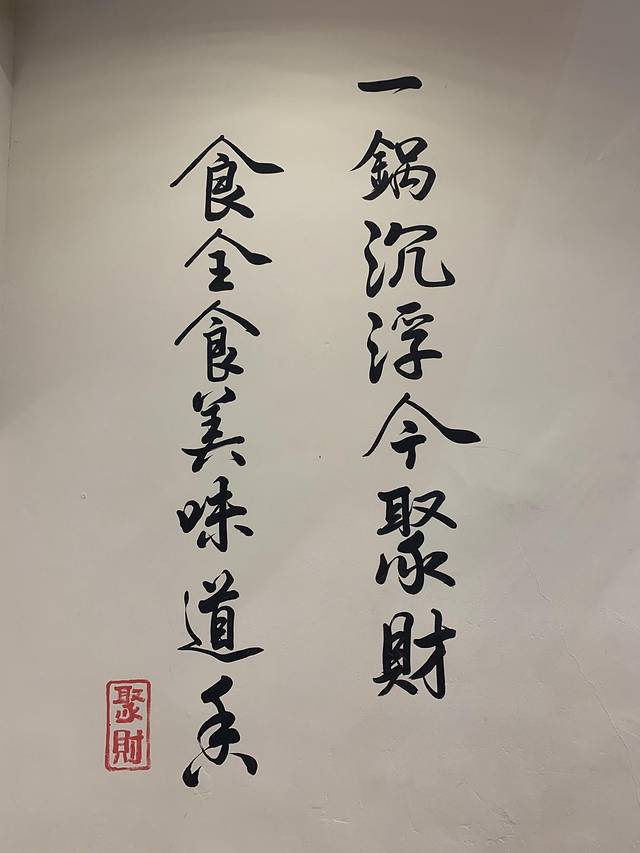 一鍋沉浮今聚財
食全食美味道香
聚財